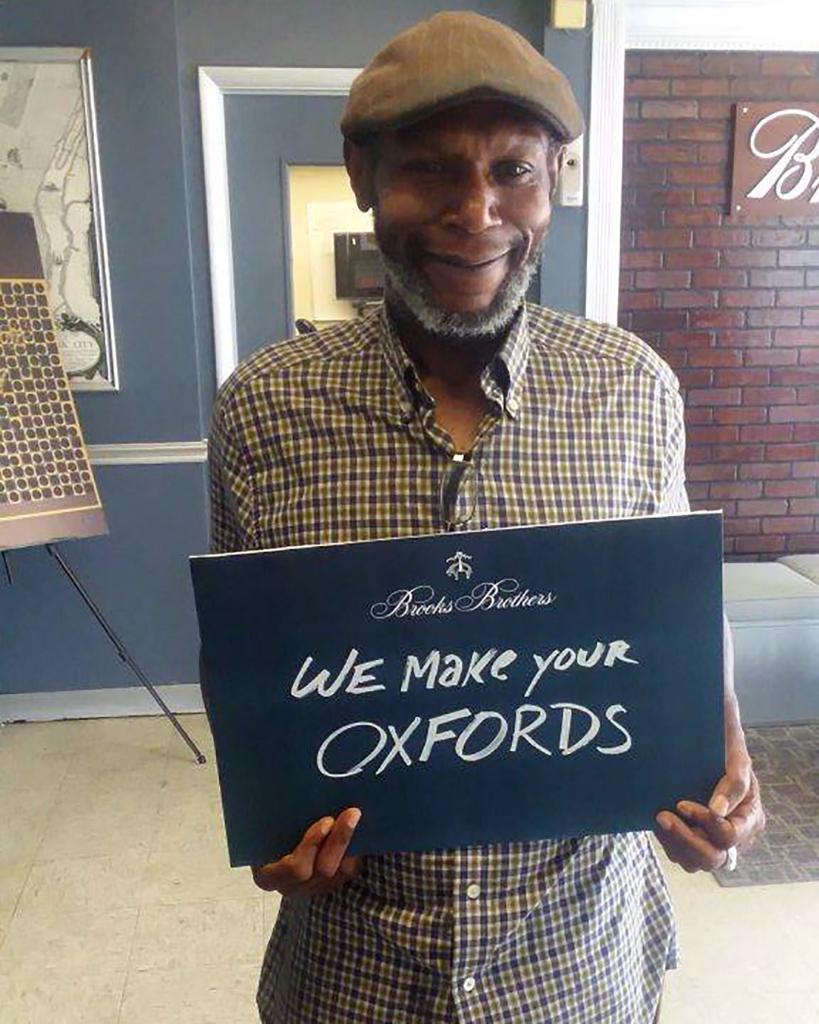 Br
CITY
Brooks Brothers
WE MAKE YOUR
OXFORDS